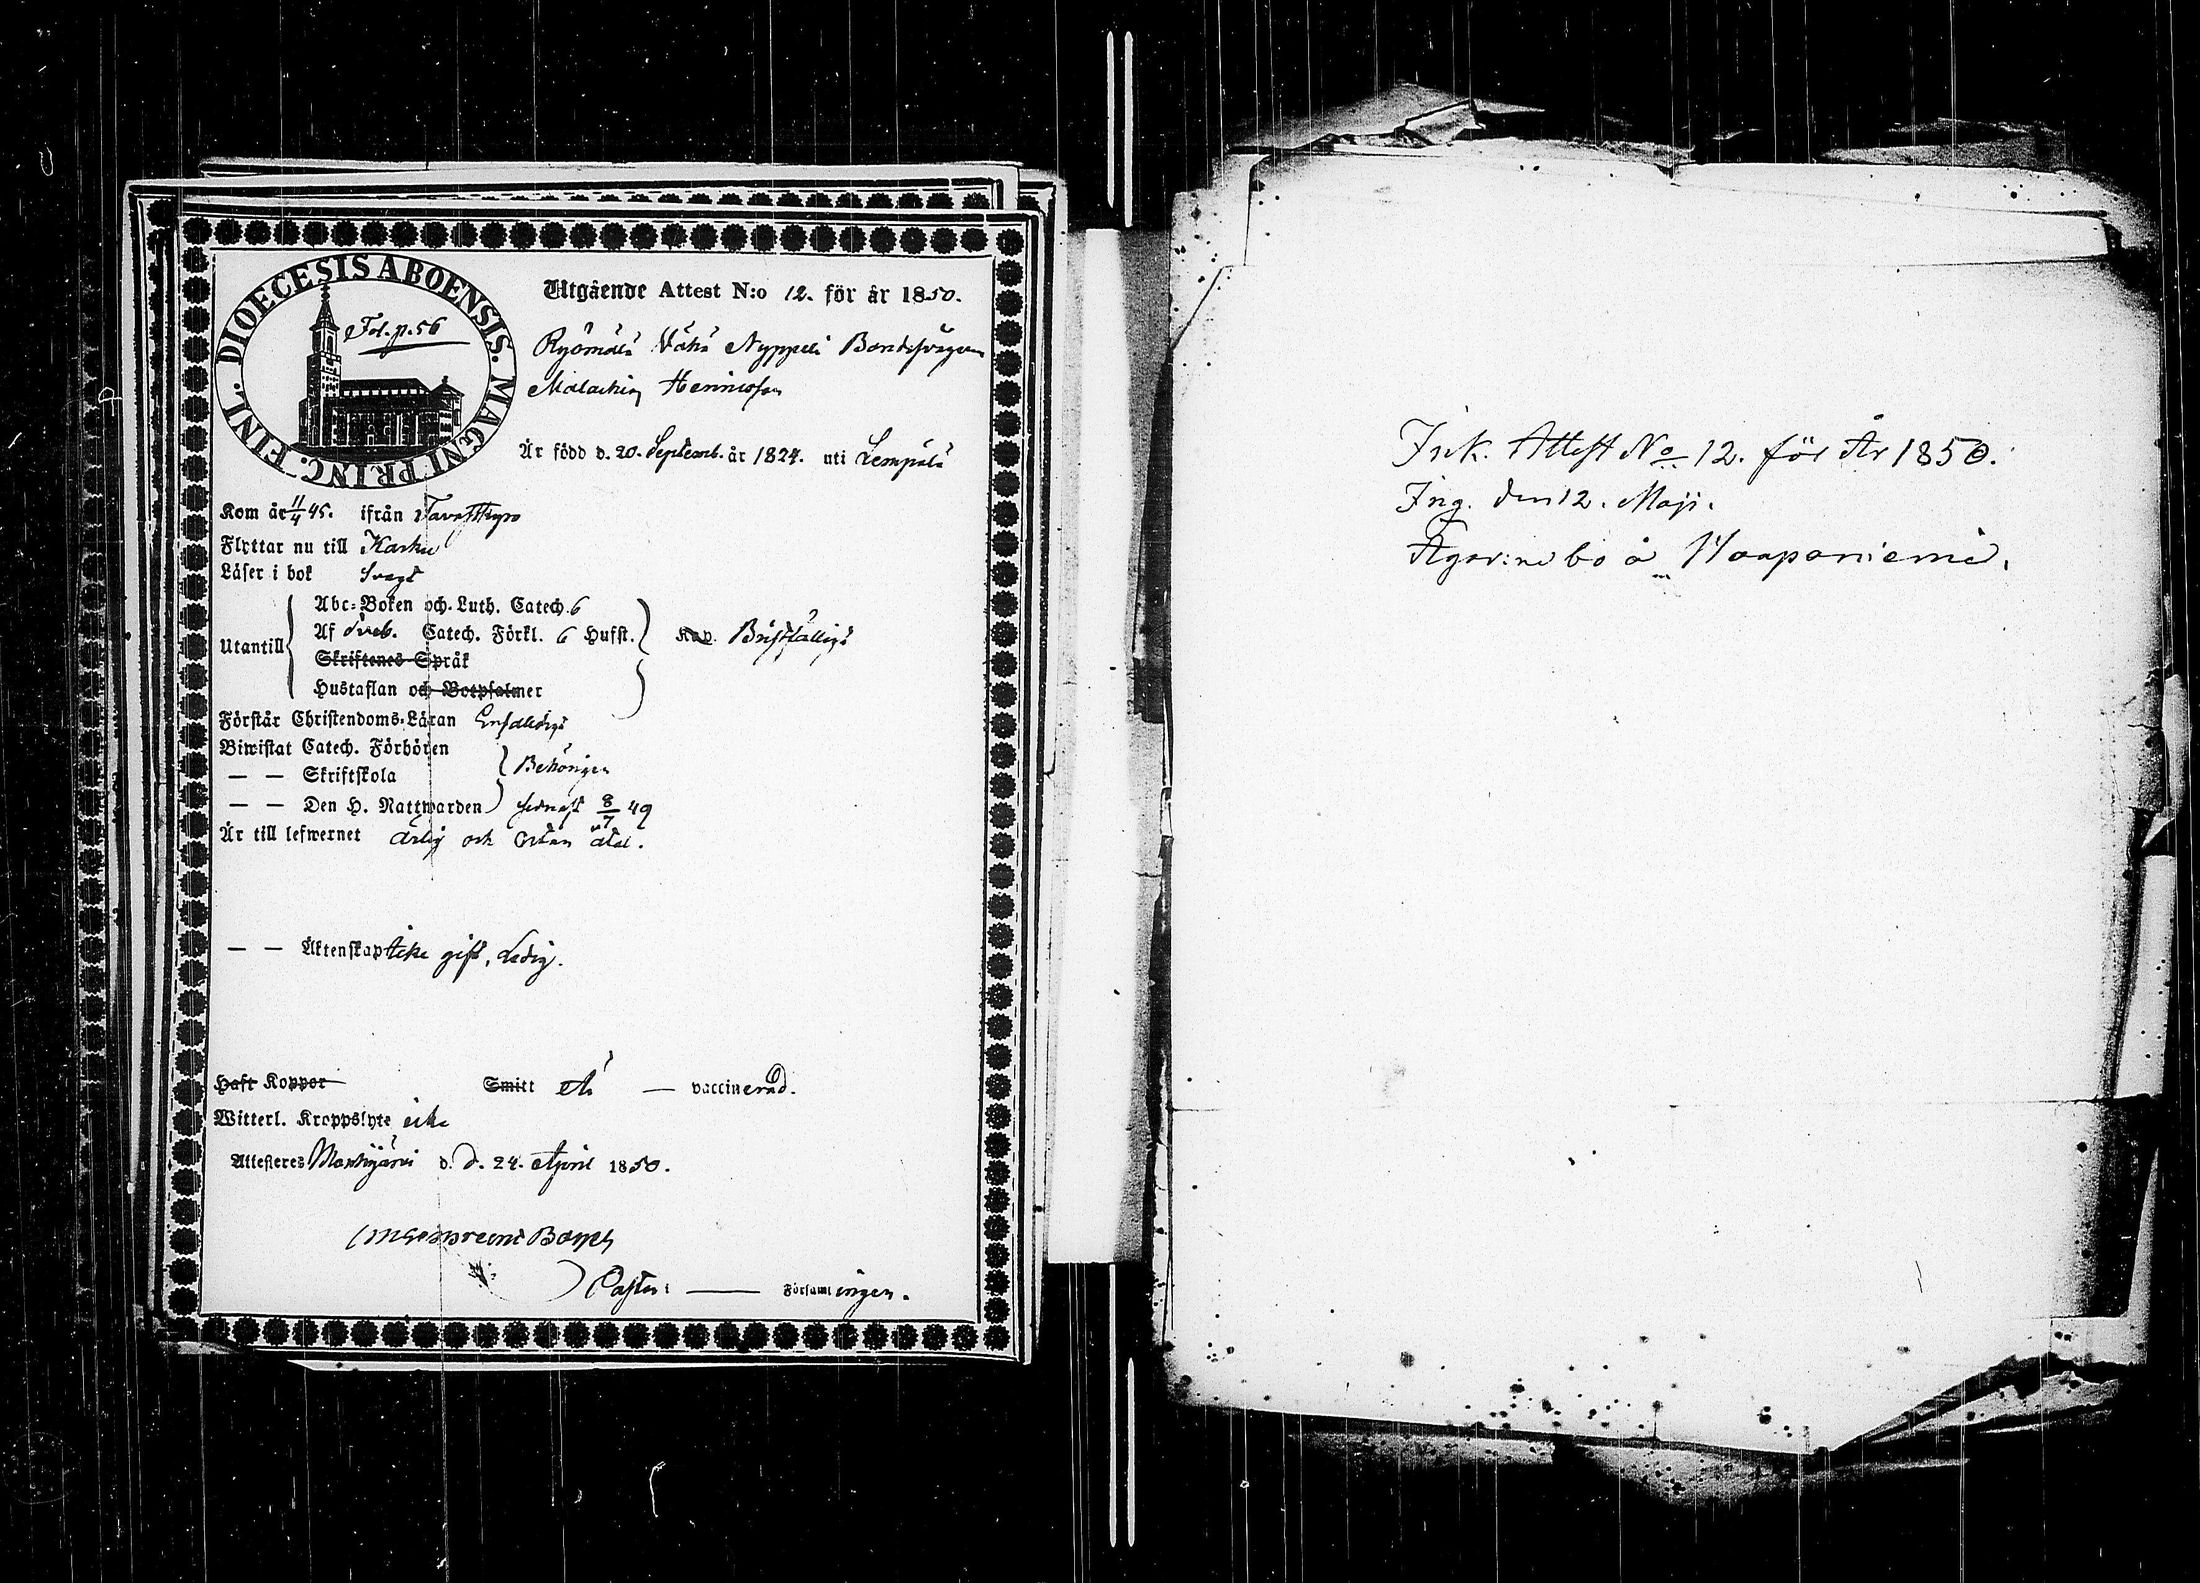 DIOECESIS ABOENSIS. MAGNI PRINC. FINL.
Fol. p. 56
Utgående Attest N:o 12. för år 1850.
Ryömälä Vähä Nyppeli Bondesvågern
Malachias Henricsson
Är född d. 20. Septemb. år 1824. uti Lempälä
Kom år 11/4 45. ifrån Tavastkyro
Flyttar nu till Karku
Läser i bok Svagt
Utantill
Abc-Boken och Luth. Catech. 6
Af Sveb. Catech. Förkl. 6 Hufst. Kap. Bristfälligt
Skriftenes Språk
Hustaflan och Botpsalmer
Förstår Christendoms-Läran Enfaldigt
Biwistat Catech. Förhören
— — Skriftskola Behörigen
— — Den H. Nattwarden sednast 8/7 49
Är till lefwernet ärlig och utan åtal.
— — Äktenskap icke gift, Ledig.
Haft Koppor Smitt Är — vaccinerad.
Witterl. Kroppslyte icke
Attesteres Mouhijärvi d. d. 24. April 1850.
Pastor i — Församlingen.
Ink. Attest No 12. för År 1850.
Ing. den 12. Maji.
Ägor: bo å Haapaniemi.